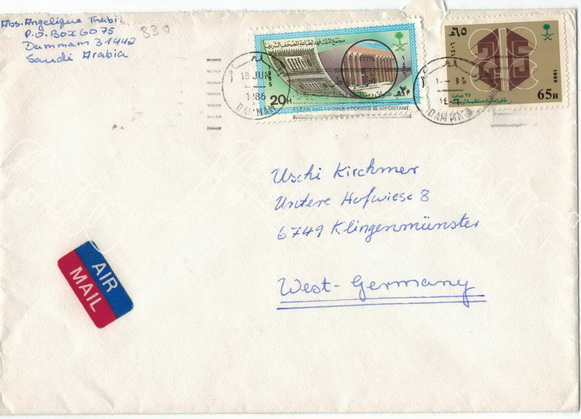 Abs. Angelique Trabi
P.O. Box 6075
Dammam 31442
Saudi Arabia
830
20H
٢٠
18 JUN
1986
DAMMAM
٦٥
25
65H
DAMMAM
Uschi Kirchmer
Untere Hofwiese 8
6749 Klingenmünster
West-Germany
AIR
MAIL